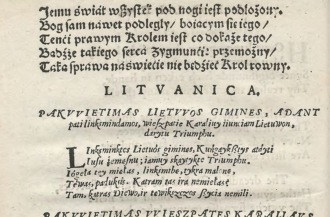 Jemu świát wßystek pod nogi iest podłożony.
Bog sam náwet podległy / boiącym sie iego /
Tenći prawym Krolem iest co dokaże tego /
Bądźże tákiego sercá Zygmunći: przemożny /
Táka spráwa náświećie nie będźiec Krol rowny.
LITVANICA.
PAKVVIETIMAS LIETVVOS GIMINES, ADANT
pati linkſmindamos, wieſzpatie Karaliny iunciam Lietuwon,
darytu Triumphu.
LInkſminkeẛ Lietuẛs giminẽs,
Iuſu żemeſnu; iaunuy skayſtyẛe Triumphu.
mielas, linkẛmibe, tykra malne,
Tiwas, padukẛ. Katram tas ira nemielas?
Tam, kurras Diewo, ir nemili.
PAKVVIETIMAS VVIESZPATES KARALIAVS